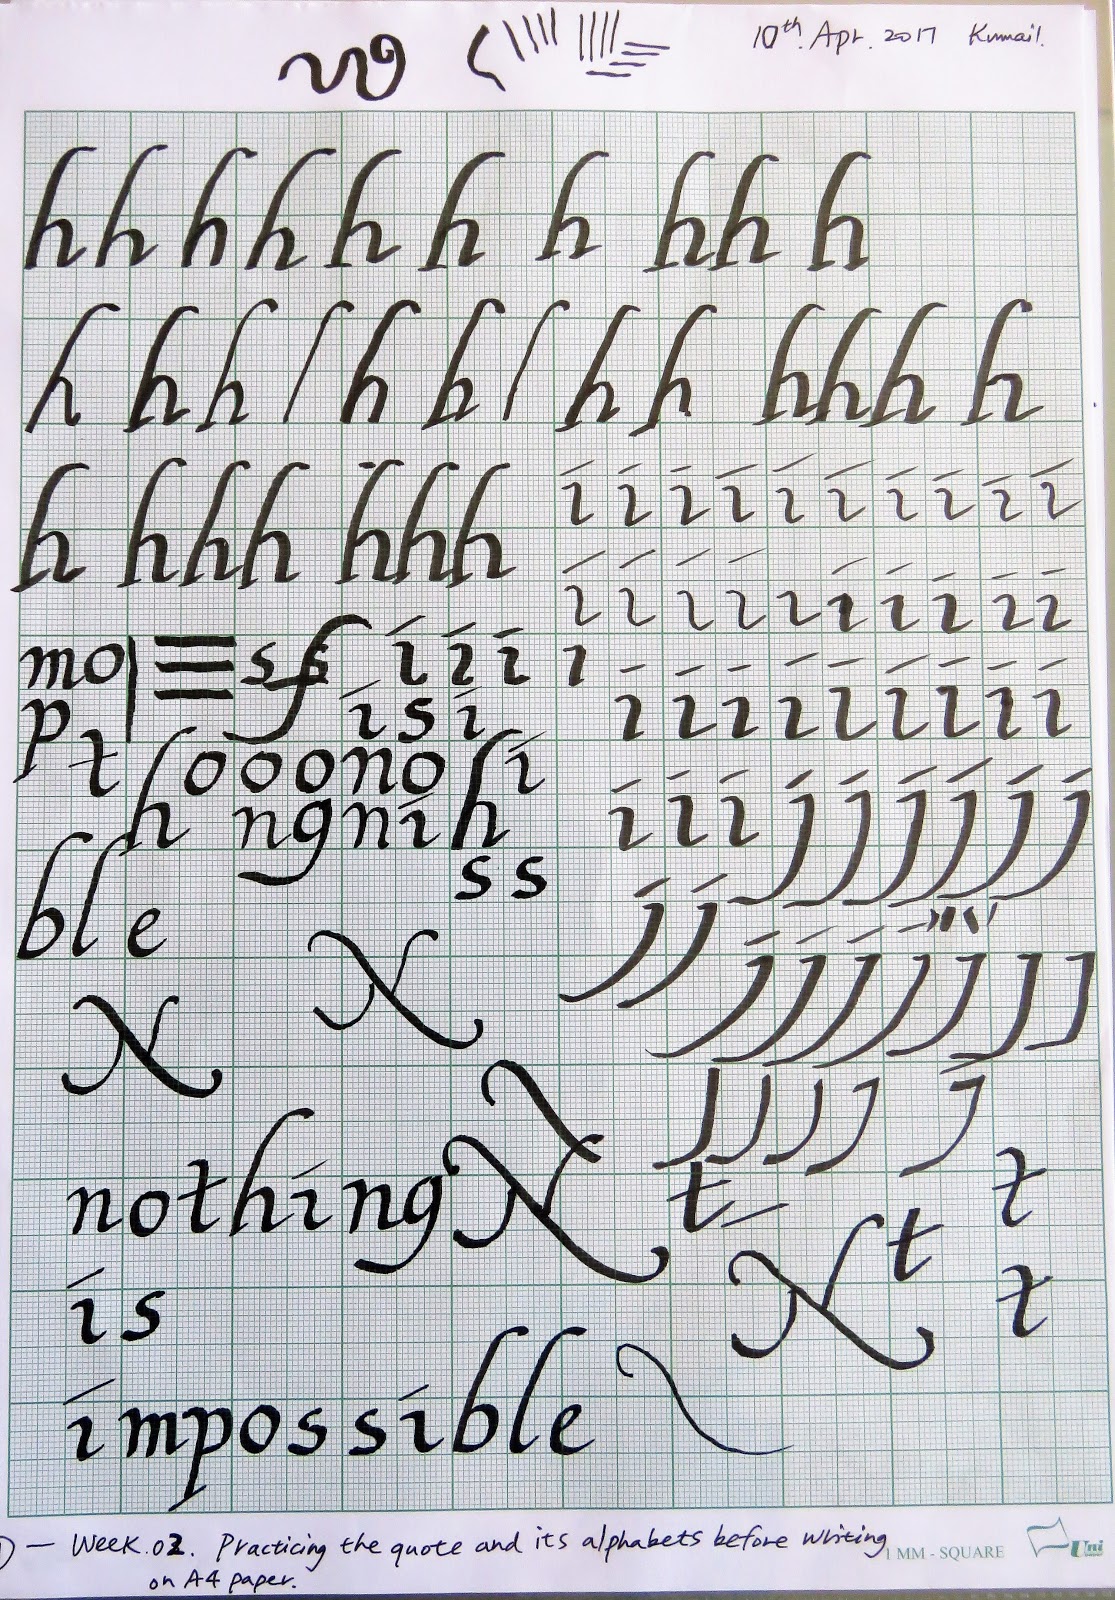 10th. Apr. 2017 Kumail.
h h h h h h h h h h
h h h h h h h h h h h
h h h h h h h ı ı ı ı ı ı ı ı ı ı
ı ı ı ı ı ı ı ı ı ı
mo s f s i i i ı
p i s i ı ı ı ı ı ı ı ı ı
t h o o o n o h i
n g n i i i i j j j j j j
s s
b l e j j
X j j j j j j j
X
X J J J J J
nothing X t t
is X t t
impossible
1) — Week.02. Practicing the quote and its alphabets before writing
on A4 paper.
1 MM - SQUARE Uni